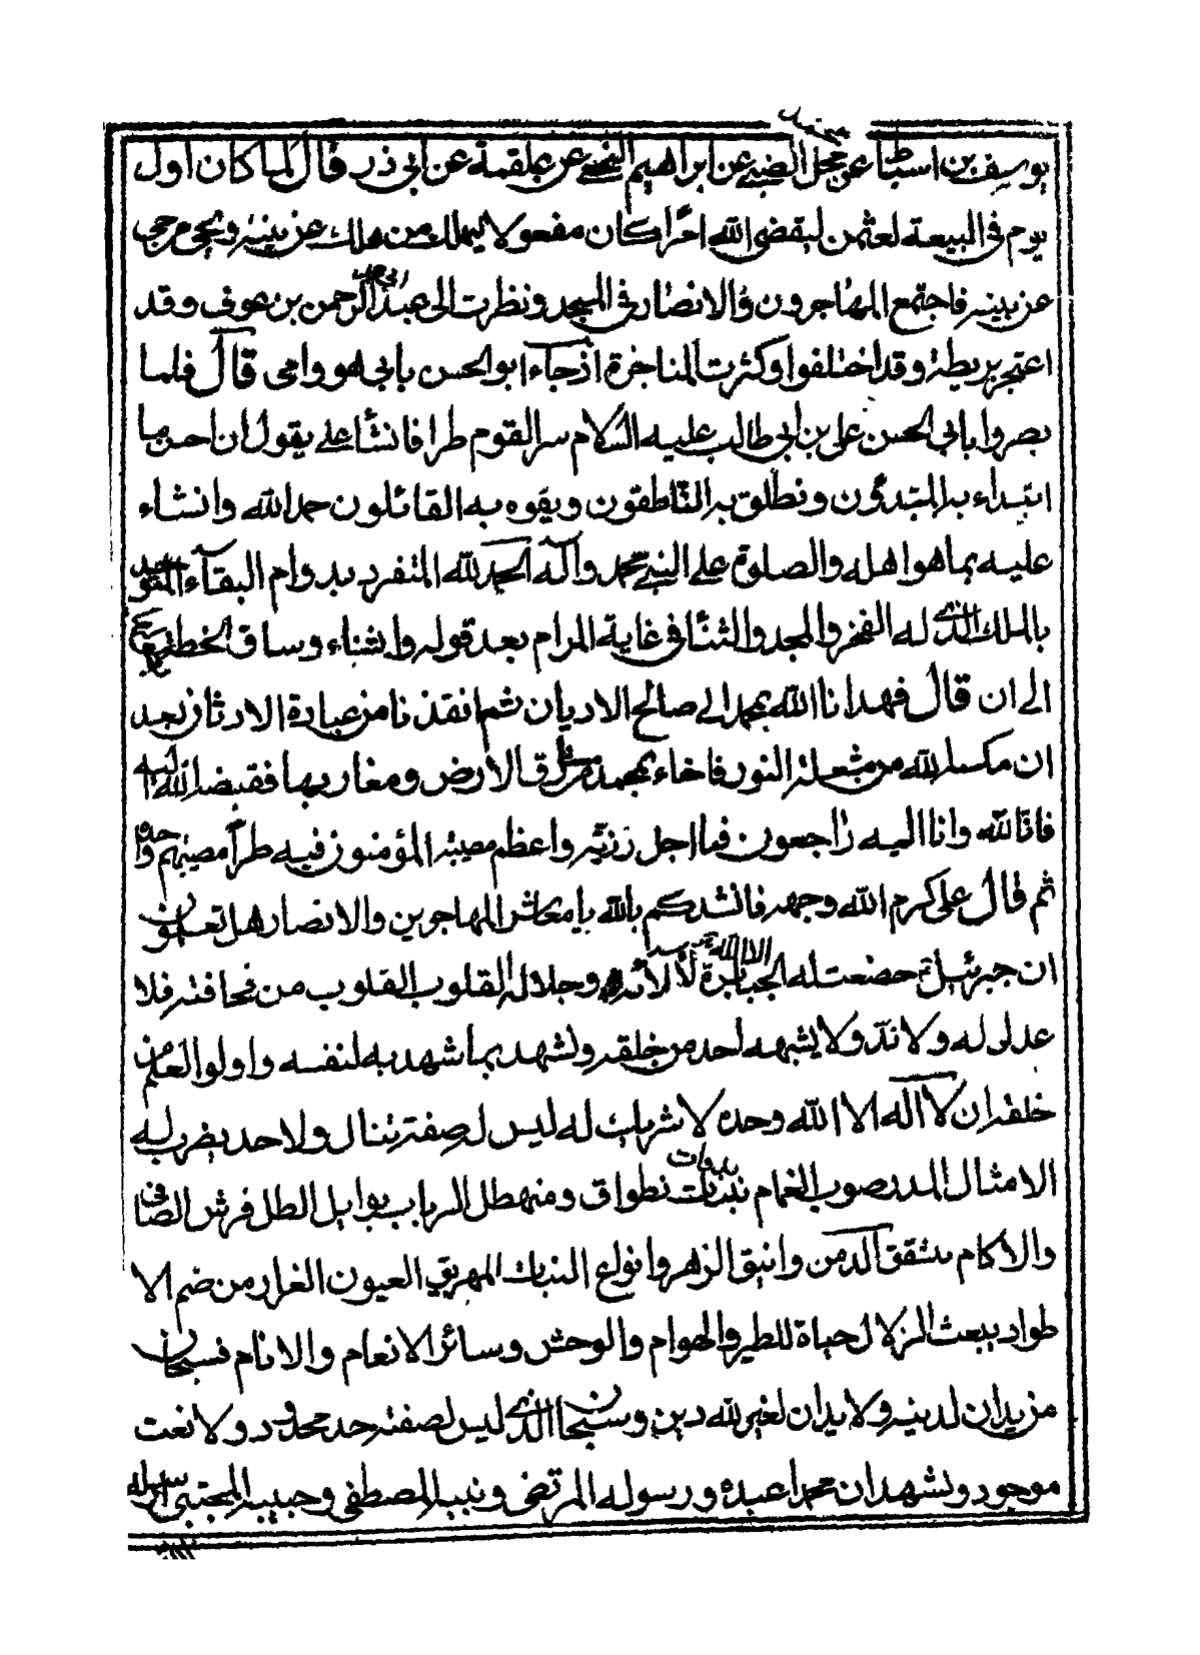 يوسف بن اسباط عن محل الضبي عن ابراهيم النخعي عن علقمة عن ابي ذر قال لما كان اول
يوم في البيعة لعثمن ليقضي الله امرا كان مفعولا ليهلك من هلك عن بينه ويحيى من حي
عن بينه فاجتمع المهاجرون والانصار في المسجد ونظرت الى عبد الرحمن بن عوف وقد
اعتجر بريطة وقد اختلفوا وكثرت المناجزة اذ جاء ابو الحسن بابي هو وامي قال فلما
بصروا بابي الحسن علي بن ابي طالب عليه السلام سر القوم طرا فانشا علي يقول ان احسن ما
ابتداء به المبتدئون ونطق به الناطقون ويفوه به القائلون حمد الله وانشاء
عليه بما هو اهله والصلوة على النبي محمد وآله الحمد لله المتفرد بدوام البقآء المتوحد
بالملك الذي له الفخر والمجد والثنا في غاية المرام بعد قوله واثناء وساق الخطبة
الى ان قال فهدانا الله بمحمد الى صالح الاديان ثم انقذنا من عبادة الاوثان بعد
ان من مشعلة النور فاضاء بمحمد مشارق الارض ومغاربها فقبضه الله اليه
فانا لله وانا اليه راجعون فما اجل رزيته واعظم مصيبته المؤمنون فيه طرا مصيبتهم واحدة
ثم قال علي كرم الله وجهه فانشدكم بالله يا معاشر المهاجرين والانصار هل تعلمون
ان جبرئيل خضعت له الجبابرة لآلائه وجلاله القلوب القلوب من مخافته فلا
عدل له ولا ند ولا يشبهه احد من خلقه ونشهد بما شهد به لنفسه واولو العلم من
خلقه ان لا آله الا الله وحده لا شريك له ليس له صفة تنال ولا حد يضرب له
الامثال المدر صوب الغمام ببنات نطواق ومنهطل الرباب بوابل الطل فرش
والاكام بتشقق الدمن وانيق الزهر وانواع النبات المهريق العيون الغرار من ضم الا
طواد يبعث الزلال حياة للطير والهوام والوحش وسائر الانعام والانام فسبحان
من يدان لدينه ولا يدان لغير الله دين وسبحان الذي ليس لصفته حد محدود ولا نعت
موجود ونشهد ان محمدا عبده ورسوله المرتضى ونبيه المصطفى وحبيبه المجتبى ارسله